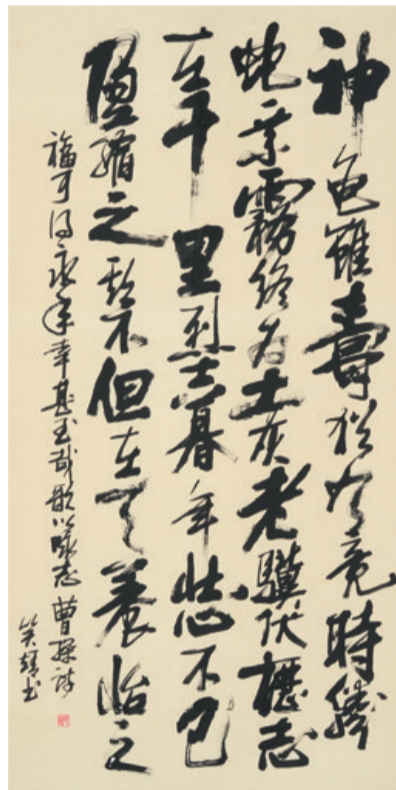 神龜雖壽猶有竟時騰
蛇乘霧終為土灰老驥伏櫪志
在千里烈士暮年壯心不已
盈縮之期不但在天養怡之
福可得永年幸甚至哉歌以詠志曹操詩